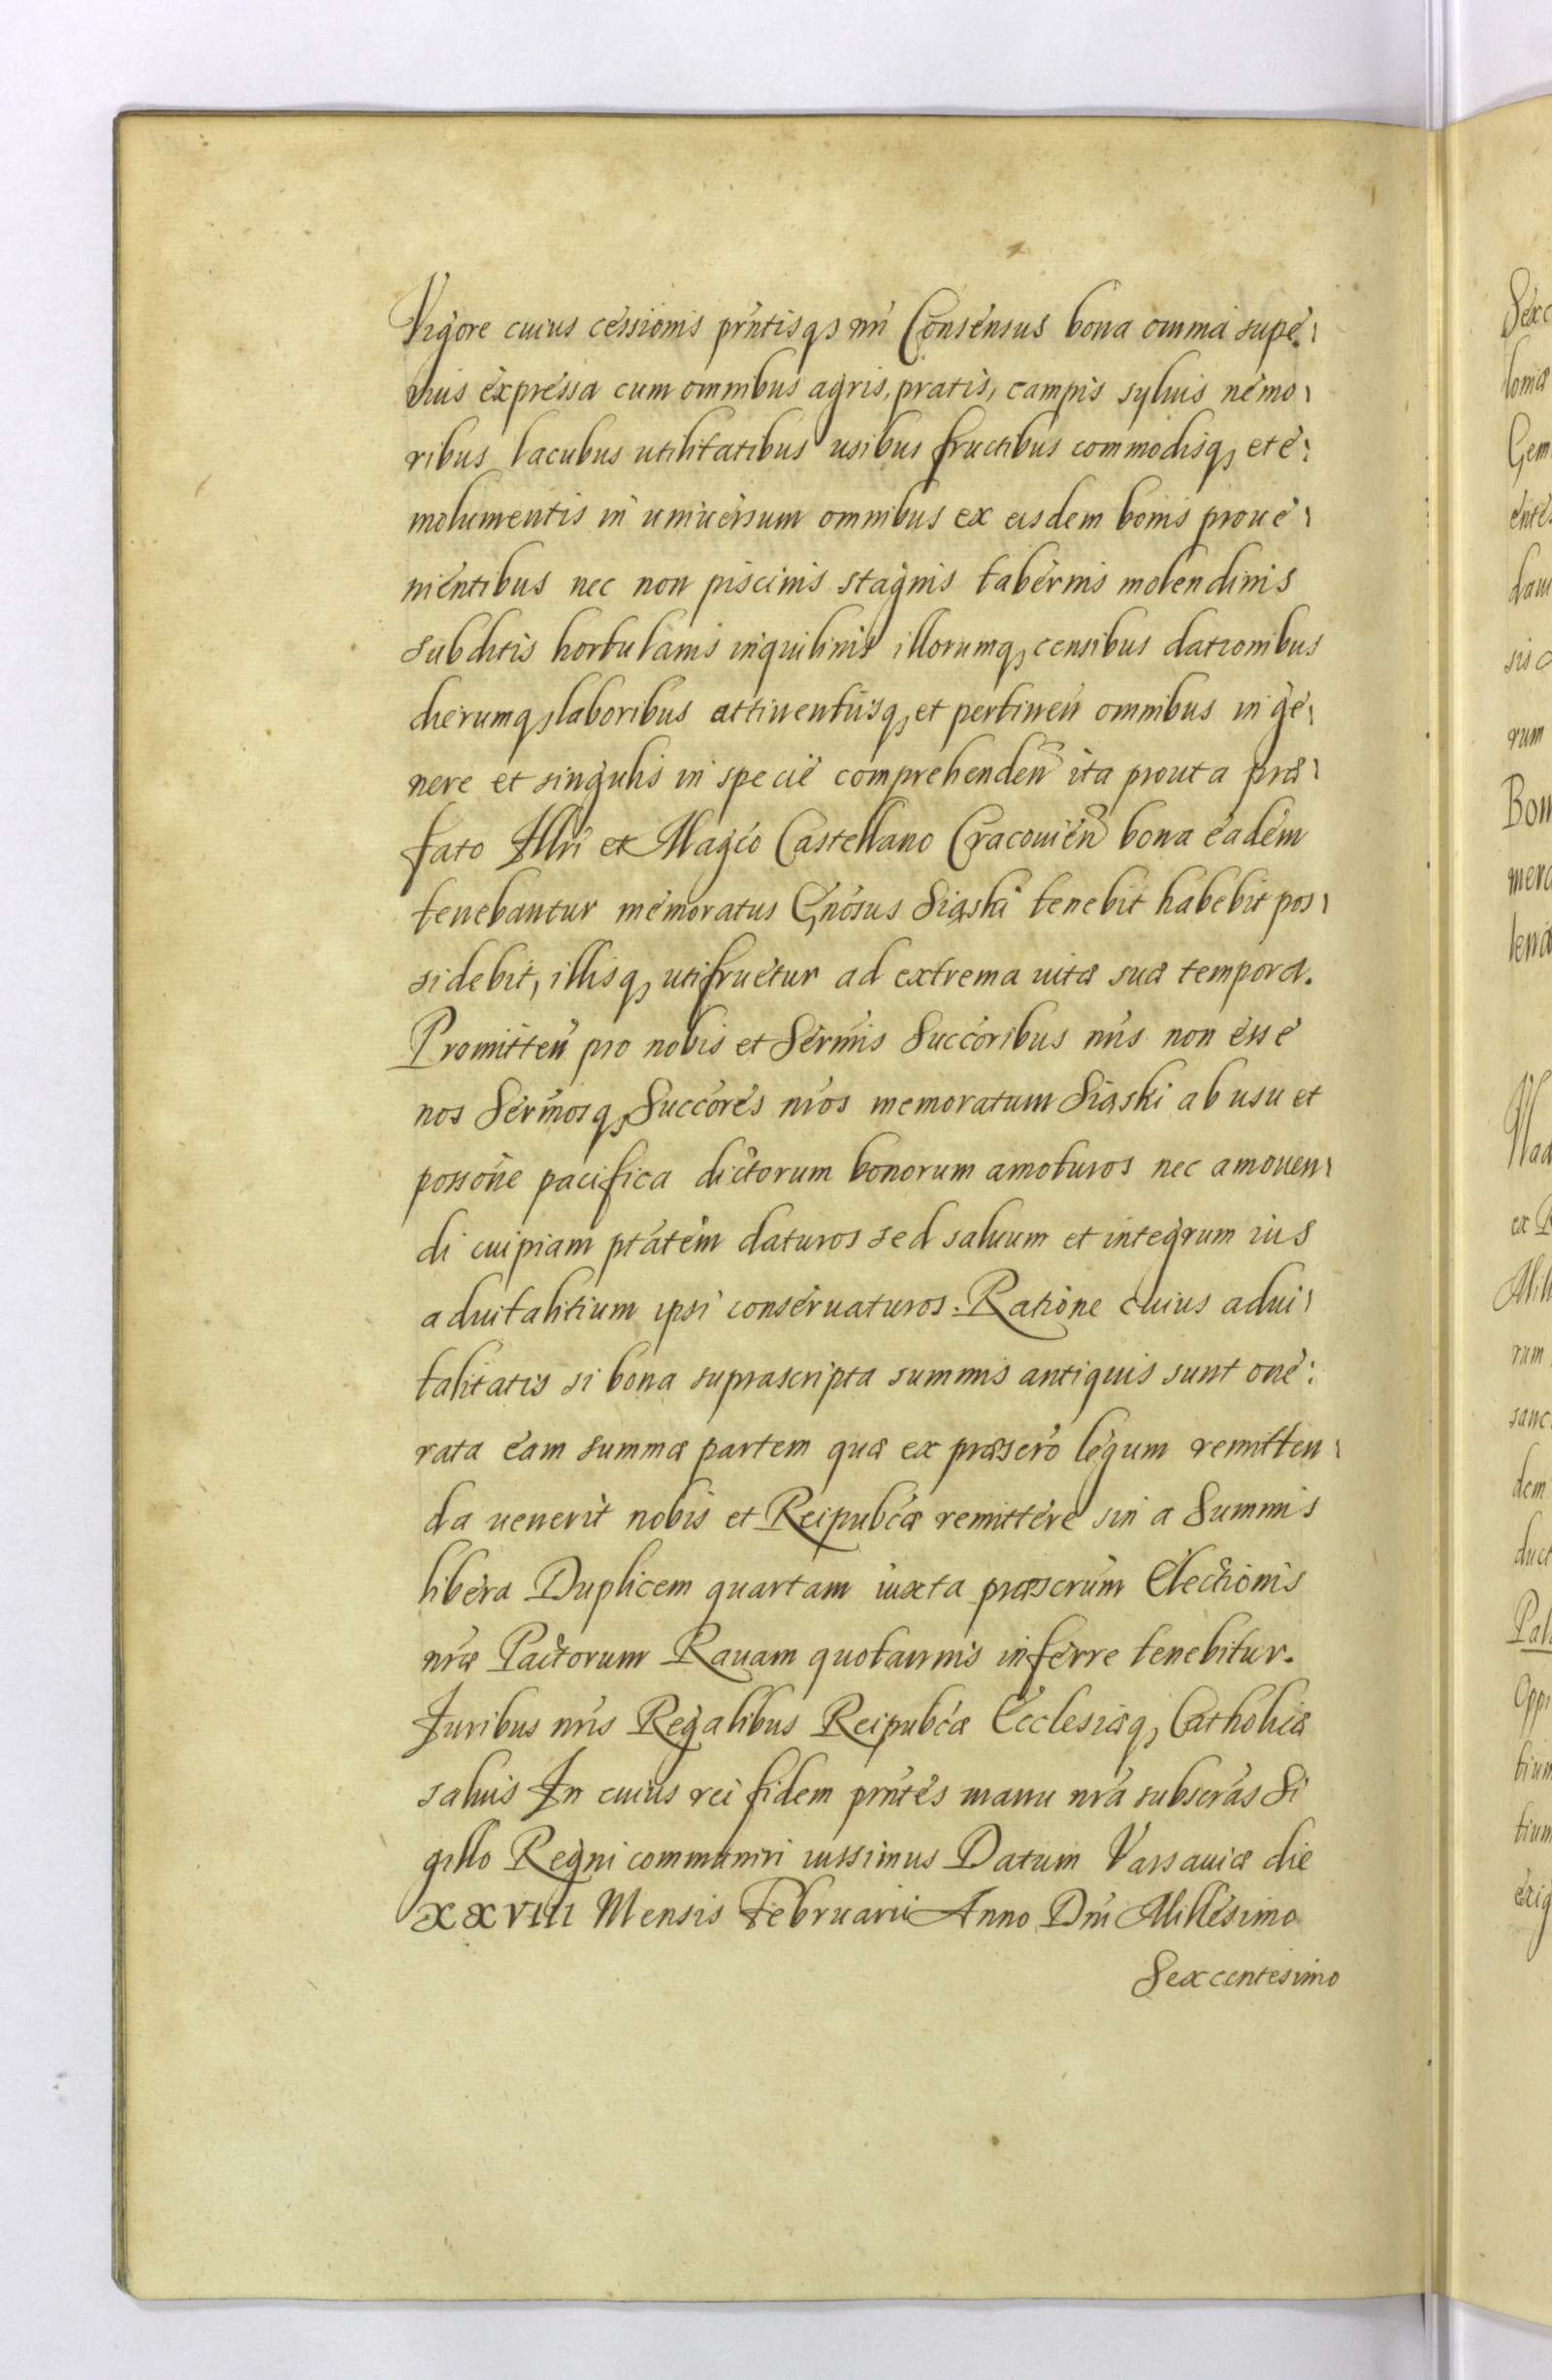 Vigore cuius cessionis prntisq₃ nri Consensus bona omnia supe
rius expressa cum omnibus agris, pratis, campis syluis nemo
ribus lacubus utilitatibus usibus fructibus commodisq₃ et e
molumentis in uniuersum omnibus ex eisdem bonis proue
nientibus nec non piscinis stagnis tabernis molendinis
subditis hortulanis inquilinis illorumq₃ censibus dationibus
dierumq₃ laboribus attinentiisq₃ et pertineñ omnibus in ge
nere et singulis in specie comprehendeñ ita prout a præ
fato Illri et Magco Castellano Cracouieñ bona eadem
tenebantur memoratus Gnosus Siąski tenebit habebit pos
sidebit, illisq₃ utifruetur ad extrema uitæ suæ tempora.
Promitteñ pro nobis et Sermis Succoribus nris non esse
nos Sermosq₃ Succores nros memoratum Siąski ab usu et
possone pacifica dictorum bonorum amoturos nec amouen
di cuipiam ptatem daturos sed saluum et integrum ius
aduitalitium ipsi conseruaturos. Ratione cuius adui
talitatis si bona suprascripta summis antiquis sunt one:
rata eam summæ partem quæ ex præscro legum remitten
da uenerit nobis et Reipubcæ remittere sin a Summis
libera Duplicem quartam iuxta præscrum Electionis
nræ Pactorum Rauam quotannis inferre tenebitur.
Juribus nris Regalibus Reipubcæ Ecclesiæq₃ Catholicæ
saluis In cuius rei fidem prntes manu nra subscras Si
gillo Regni communiri iussimus Datum Varsauiæ die
XXVIII Mensis Februarii Anno Dni Millesimo
Sexcentesimo